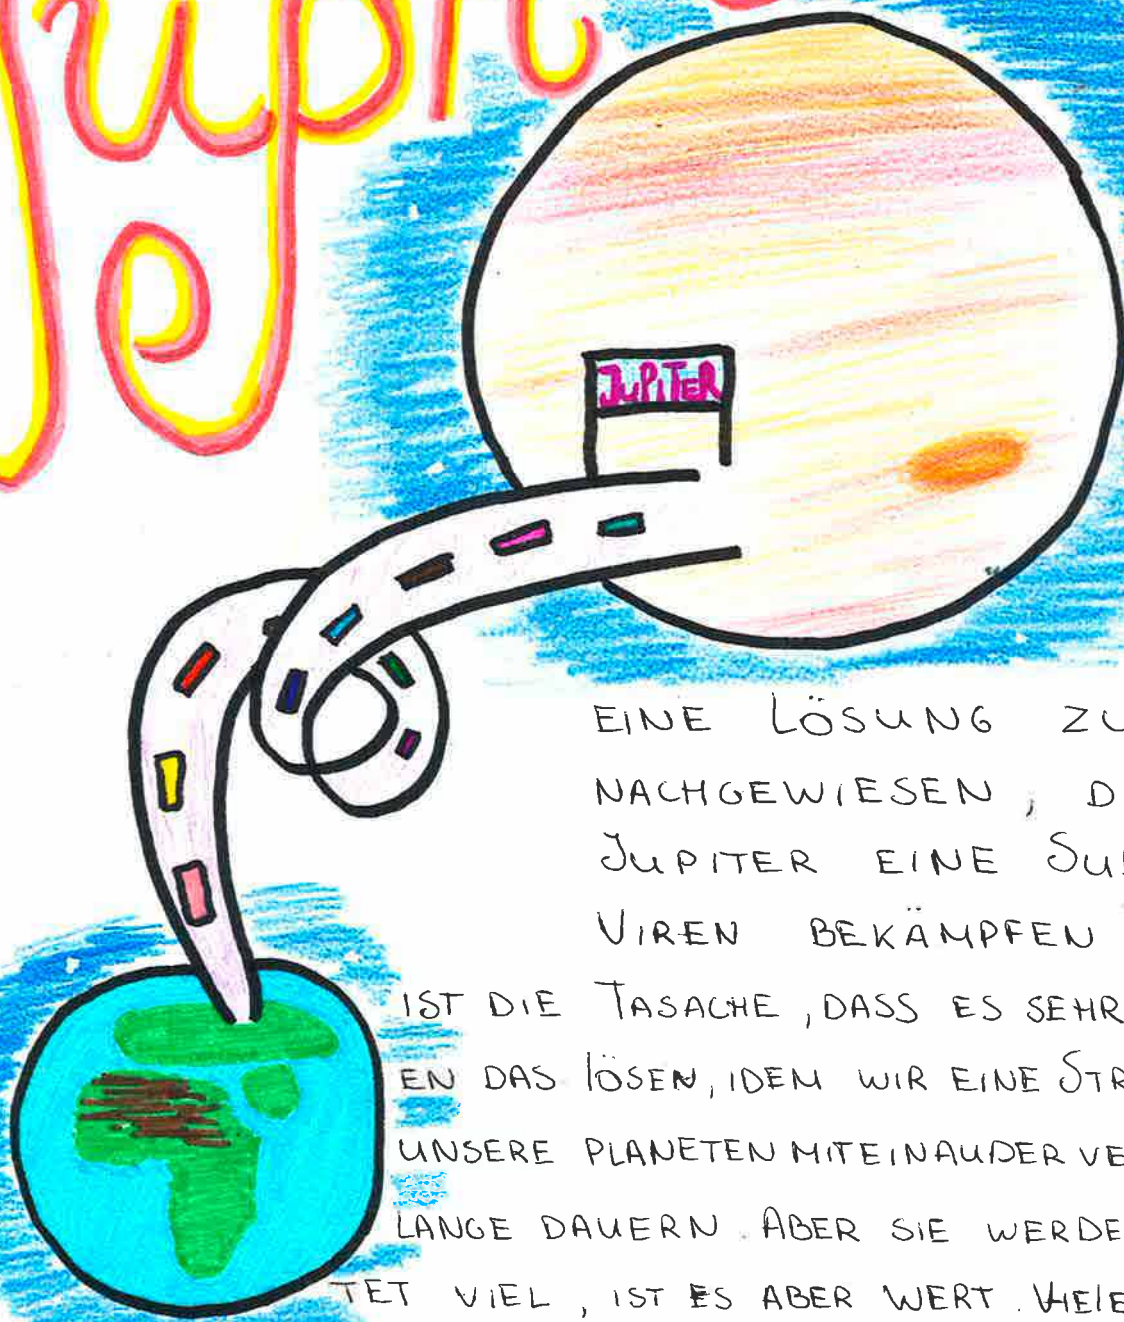 Jupit
JUPITER
EINE LÖSUNG ZU
NACHGEWIESEN, D
JUPITER EINE SU
VIREN BEKÄMPFEN
IST DIE TASACHE, DASS ES SEHR
EN DAS LÖSEN, IDEM WIR EINE STR
UNSERE PLANETEN MITEINAUDER VE
LANGE DAUERN. ABER SIE WERDE
TET VIEL, IST ES ABER WERT. VIELE